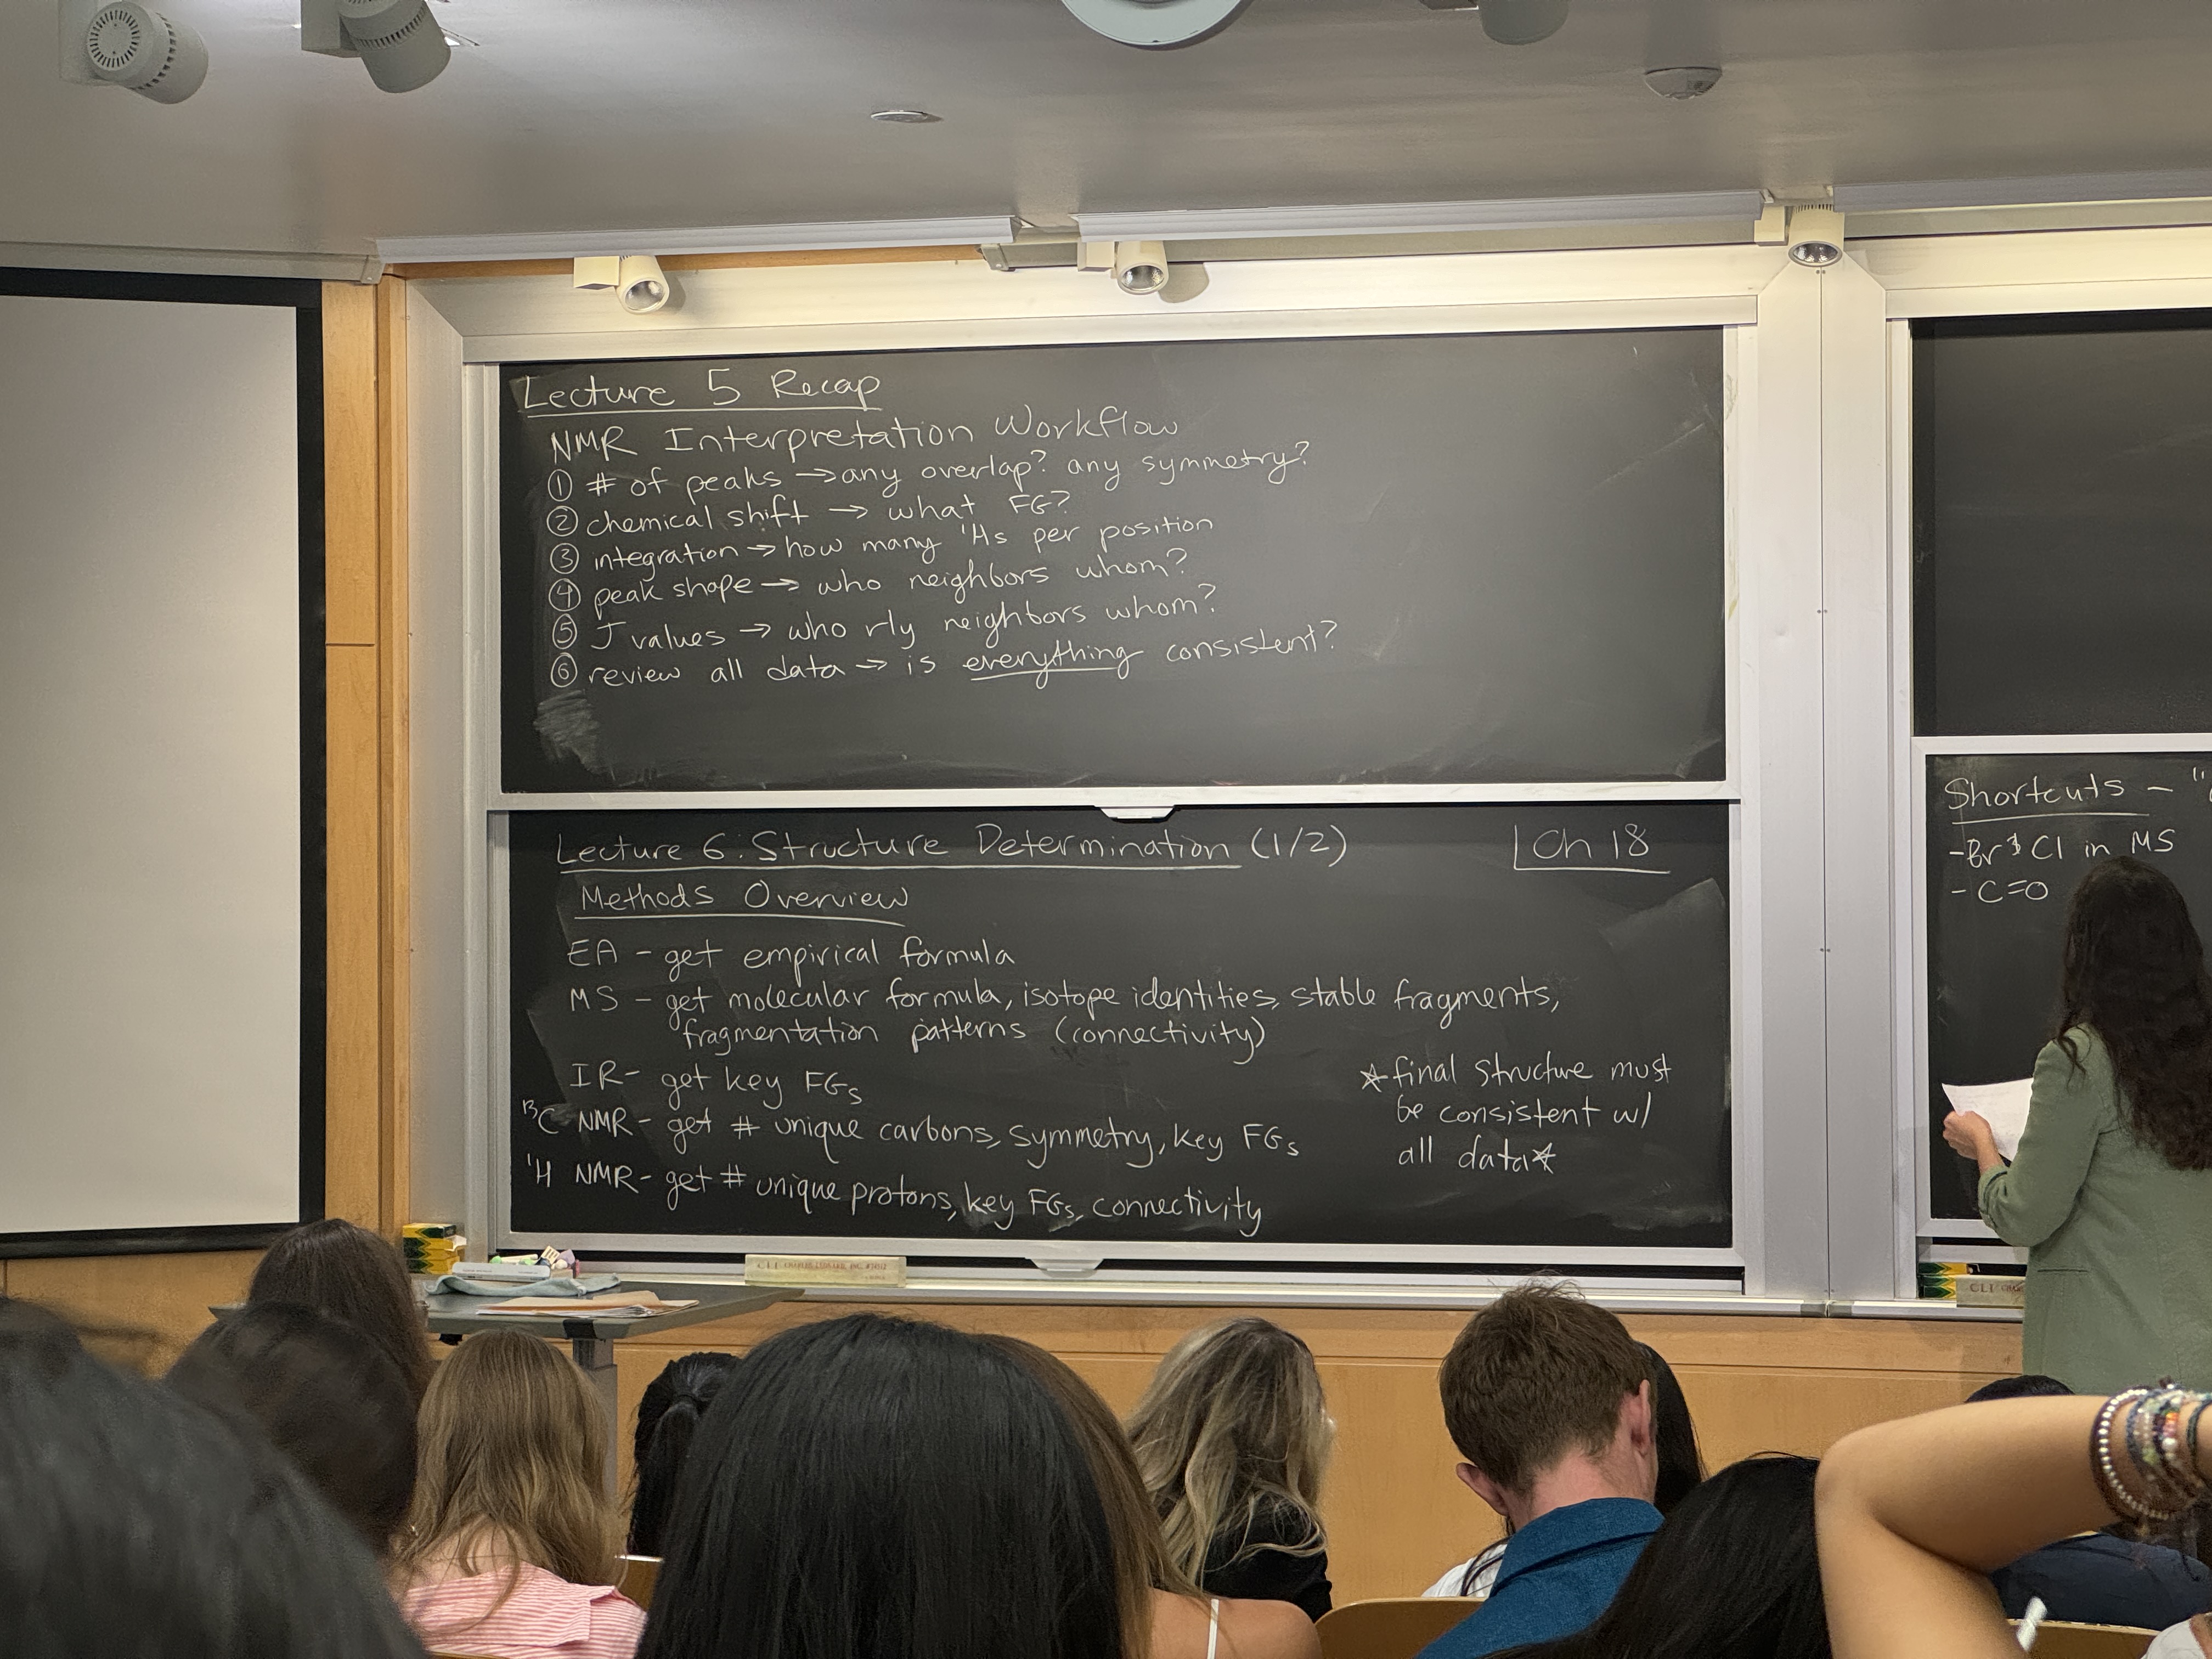 Lecture 5 Recap
NMR Interpretation Workflow
① # of peaks → any overlap? any symmetry?
② chemical shift → what FG?
③ integration → how many ¹Hs per position
④ peak shape → who neighbors whom?
⑤ J values → who rly neighbors whom?
⑥ review all data → is everything consistent?
Lecture 6: Structure Determination (1/2)
Ch 18
Methods Overview
EA - get empirical formula
MS - get molecular formula, isotope identities, stable fragments,
fragmentation patterns (connectivity)
IR - get key FGs
¹³C NMR - get # unique carbons, symmetry, key FGs
¹H NMR - get # unique protons, key FGs, connectivity
* final structure must
be consistent w/
all data *
Shortcuts - "
- Br & Cl in MS
- C=O
CLI
CLI